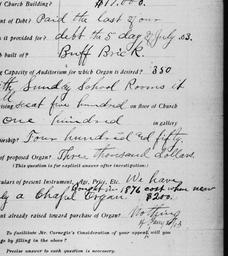 of Church Building? $17,000.
nt of Debt? Paid the last of our
is it provided for? debt the 5 day of July 03.
built of? Buff Brick.
Capacity of Auditorium for which Organ is desired? 350
Sunday School Rooms it
seat five hundred on floor of Church
one hundred in gallery
Four hundred & fifty
of proposed Organ? Three thousand dollars.
(This question for explicit answer after investigation)
culars of present Instrument, Age, Price, Etc. We have
Bought in 1876 cost when new
ly a Chapel Organ $200.
nt already raised toward purchase of Organ? Nothing
To facilitate Mr. Carnegie's Consideration of your appeal, will you
ge by filling in the above?
Precise answer to each question is necessary.